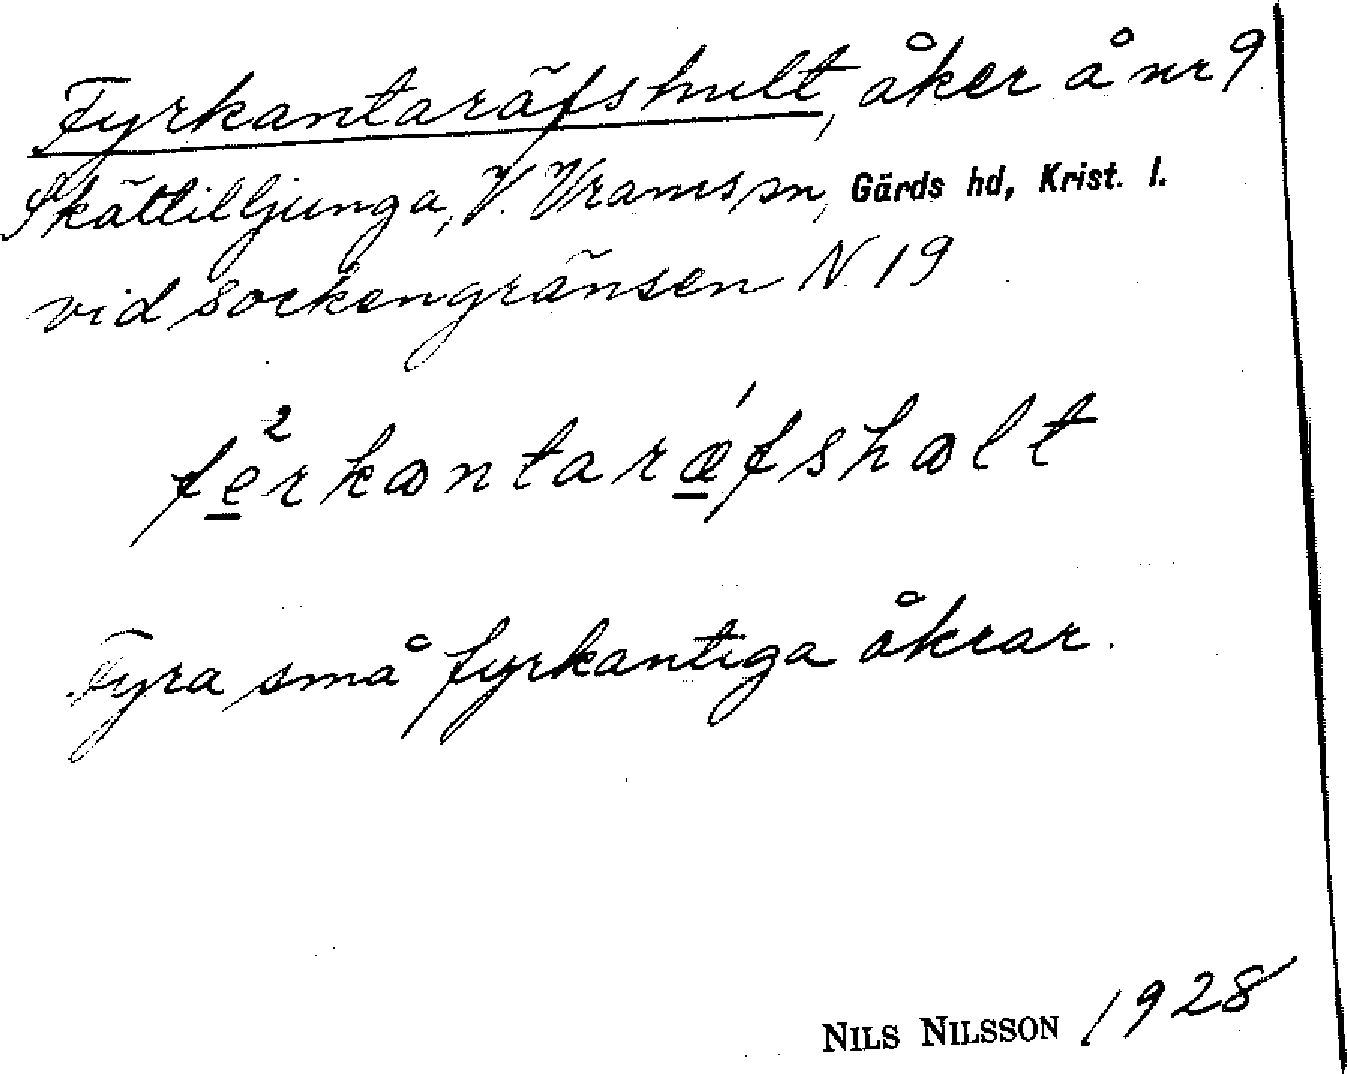 Fyrkantaräfshult, åker å nr 9
Skättilljunga, V. Vrams sn, Gärds hd, Krist. l.
vid sockengränsen N. 19
fe²rkantaræ´fshalt
Fyra små fyrkantiga åkrar.
NILS NILSSON 1928